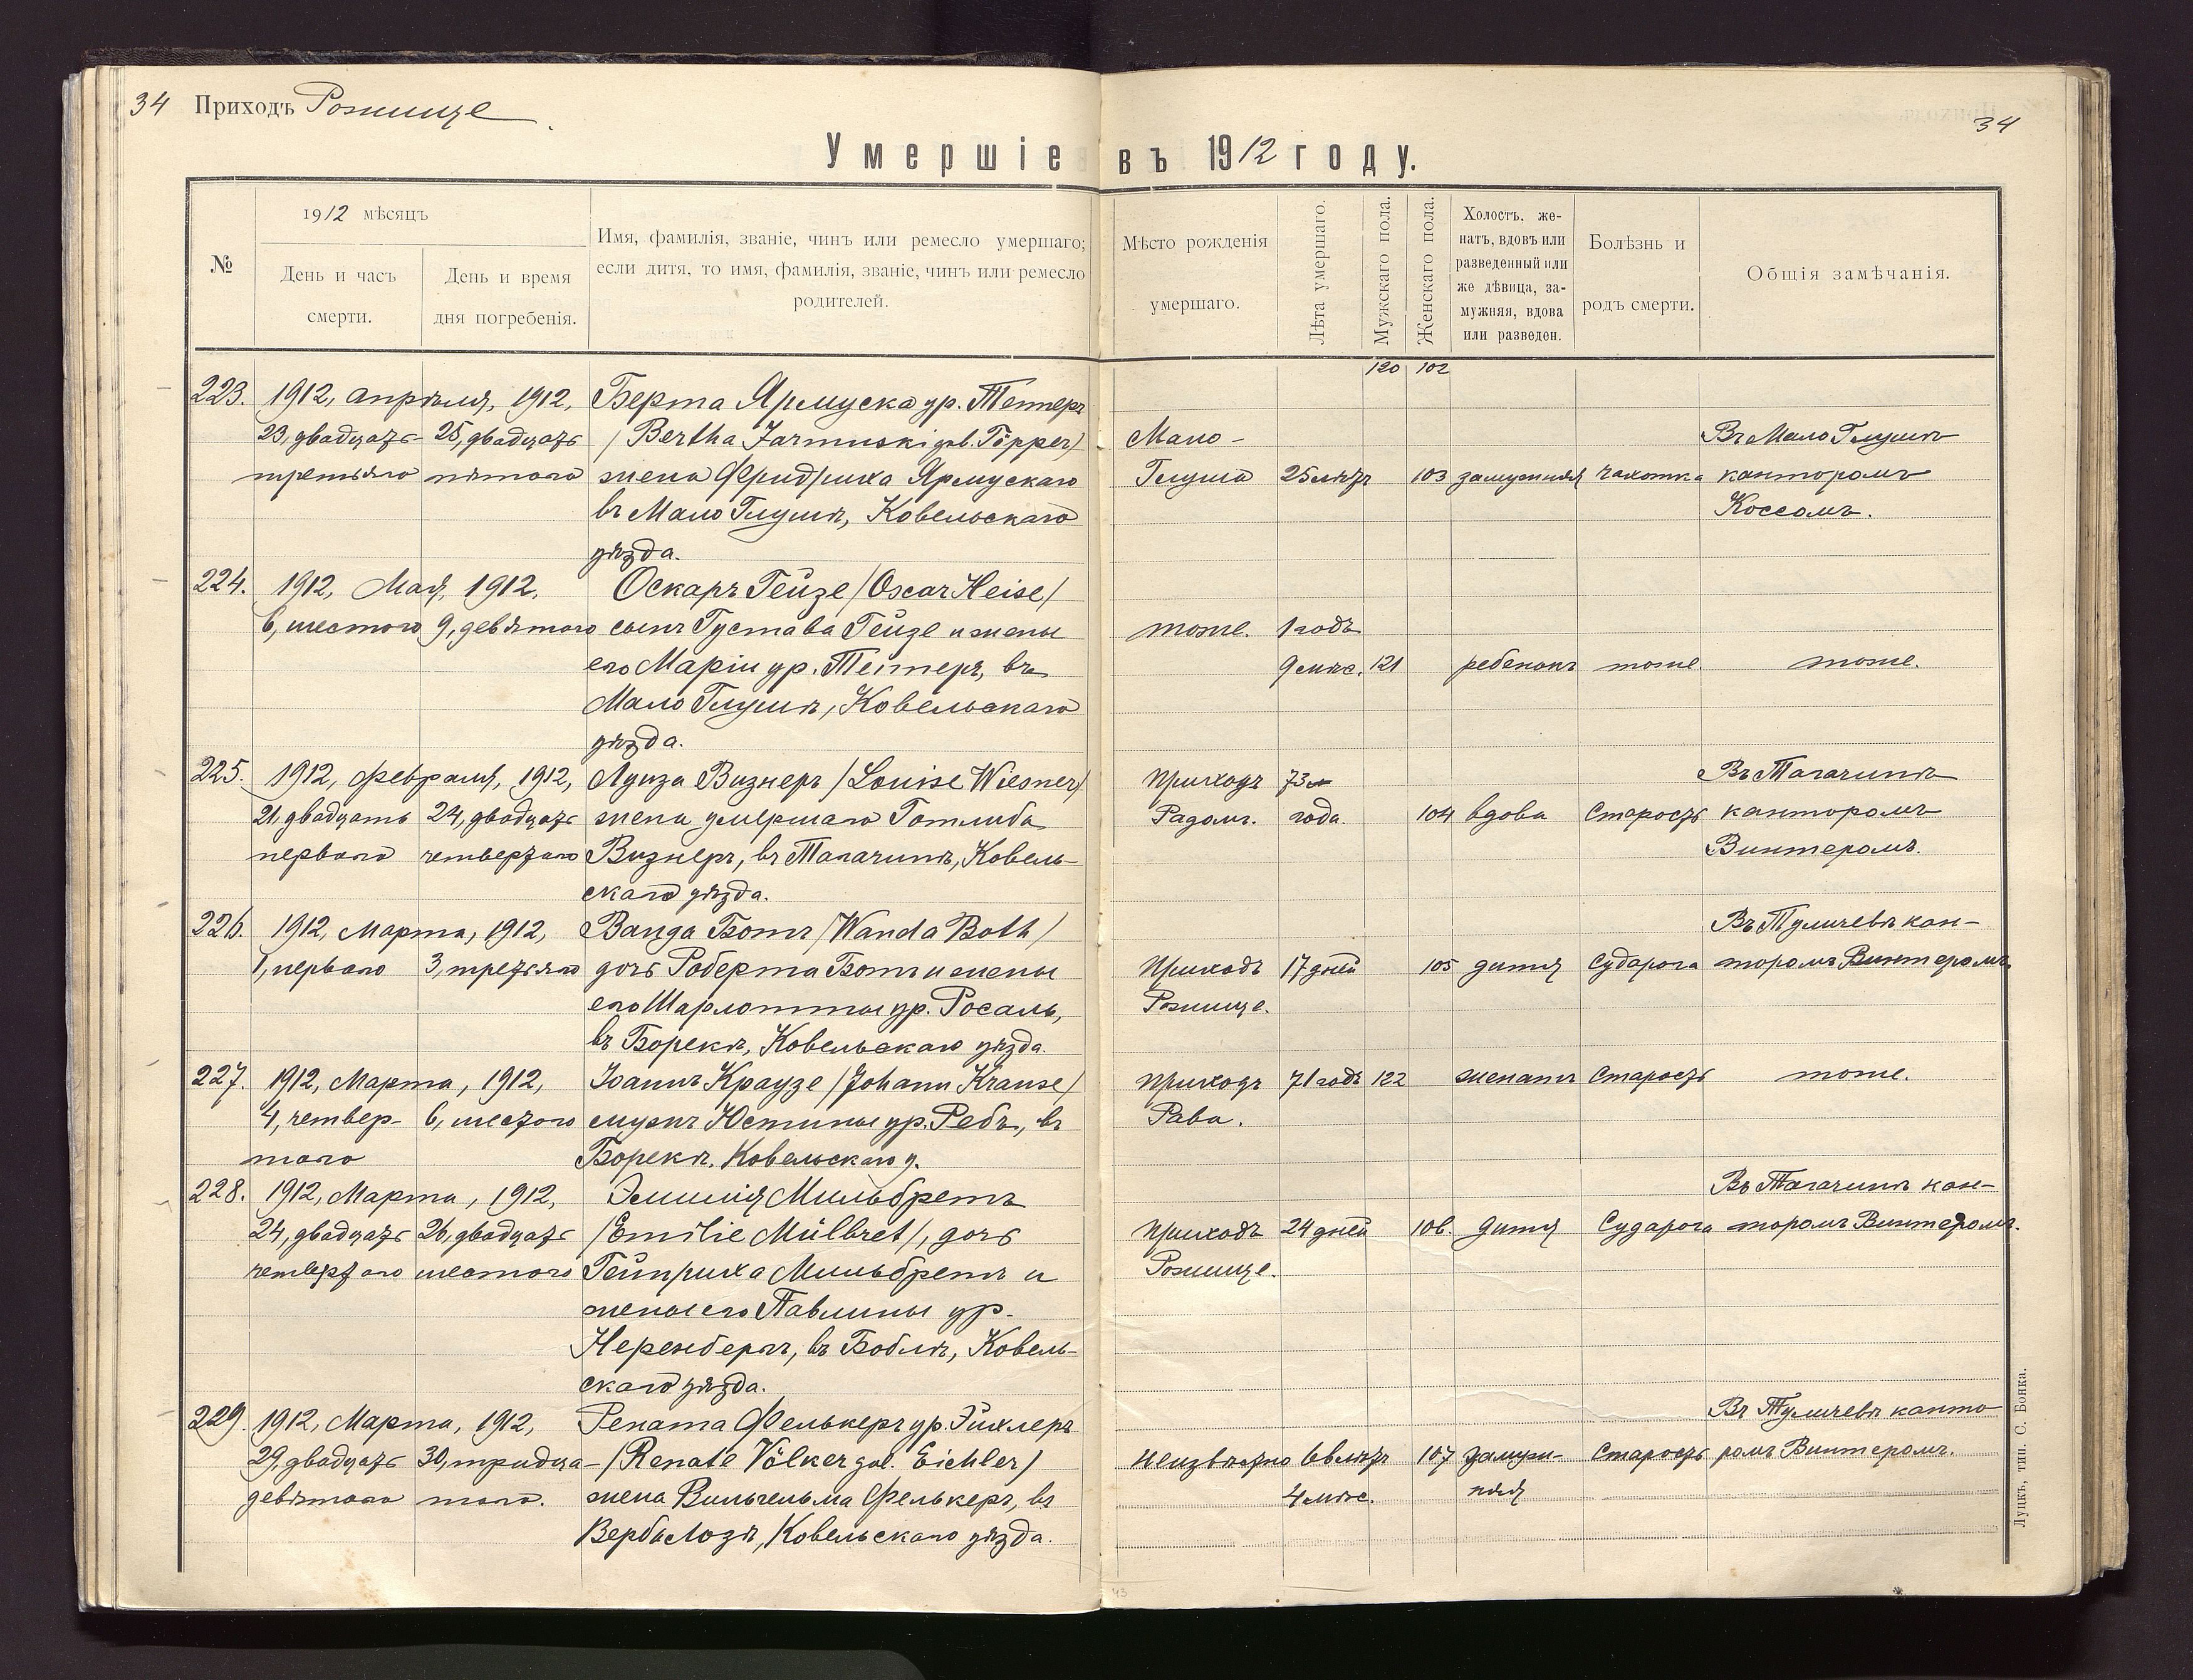 34 Приходъ Рожище
34
Умершіе въ 1912 году.
№
1912 мѣсяцъ
День и часъ
смерти.
День и время
дня погребенія.
Имя, фамилія, званіе, чинъ или ремесло умершаго;
если дитя, то имя, фамилія, званіе, чинъ или ремесло
родителей.
Мѣсто рожденія
умершаго.
Лѣта умершаго.
Мужскаго пола.
Женскаго пола.
Холостъ, же-
натъ, вдовъ или
разведенный или
же дѣвица, за-
мужняя, вдова
или разведен.
Болѣзнь и
родъ смерти.
Общія замѣчанія.
120 102
223. 1912, апрѣля, 1912,
23, двадцать 25, двадцать
третьяго пятого
Берта Ярмуска ур. Теппер
/Bertha Jarmuski geb. Töpper/
жена Фридриха Ярмускаго
въ Мало Глушѣ, Ковельскаго
уѣзда.
Мало-
Глуша 25 лѣтъ 103 замужняя чахотка
Въ Мало Глушѣ
канторомъ
Коссомъ.
224. 1912, Мая, 1912.
6, шестого 9, девятого
Оскаръ Гейзе /Oscar Heise/
сынъ Густава Гейзе и жены
его Маріи ур. Теппер, въ
Мало Глушѣ, Ковельскаго
уѣзда.
тоже. 1 годъ
9 мѣс. 121 ребенокъ тоже. тоже.
225. 1912, февраля, 1912,
21, двадцать 24, двадцать
первого четвертого
Луиза Визнеръ /Louise Wiesner/
жена умершаго Готлиба
Визнеръ, въ Тагачинѣ, Ковель-
скаго уѣзда.
Приходъ 73
Радомъ. года. 104 вдова Старость
Въ Тагачинѣ
канторомъ
Винтеромъ.
226. 1912, Марта, 1912,
1, первого 3, третьяго
Ванда Ботъ /Wanda Both/
дочь Роберта Ботъ и жены
его Шарлотты ур. Росаль,
въ Борекѣ, Ковельскаго уѣзда.
Приходъ 17 дней 105 дитя Сударога
Рожище.
Въ Туличевѣ кан-
торомъ Винтеромъ
227. 1912, Марта, 1912,
4, четвер- 6, шестого
таго
Іоаннъ Краузе /Johann Krause/
мужъ Юстины ур. Ребъ, въ
Борекѣ, Ковельскаго у.
Приходъ 71 годъ 122 женатъ Старость тоже.
Рава.
228. 1912, Марта, 1912,
24, двадцать 26, двадцать
четвертого шестого
Эмилія Мильбретъ
/Emilie Mülbret/, дочь
Гейнриха Мильбретъ и
жены его Павлины ур.
Неренбергъ, въ Боблѣ, Ковель-
скаго уѣзда.
Приходъ 24 дней 106. дитя Сударога
Рожище.
Въ Тагачинѣ кан-
торомъ Винтеромъ.
229. 1912, Марта, 1912,
29, двадцать 30, тридца-
девятого таго.
Рената Фелькеръ ур. Эйхлеръ
/Renate Völker geb. Eichler/
жена Вильгельма Фелькеръ, въ
Вербы Лозѣ, Ковельскаго уѣзда.
Неизвѣстно 68 лѣтъ 107 замуж- Старость
4 мѣс. няя
Въ Туличевѣ канто
ромъ Винтеромъ.
Луцкъ, тип. С. Бонка.